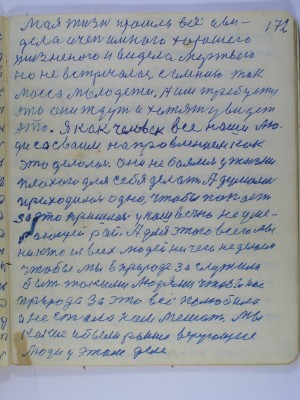 Моя жизнь прошла всё я ви- 172
дела очень много хорошего
жизненого и видела мертвого
но не встречалась с
масса молодежи. А им требуется
это они ждут и хотят увидеть
это. Я как человек все наши лю-
ди со своим направлением как
это делали. Они не боялися у жизни
плохого для себя делать. А думали
приходили одно, чтобы покоя
за это пришла у нас вечно не уми-
рающей рай. А для этого всего мы
никто из всех людей ничего не делали
чтобы мы в природе заслужили
быть такими людьми чтобы нас
природа за это всё полюбила
а не стала нам мешать. Мы
какие и были раньше верующие
люди у этом деле